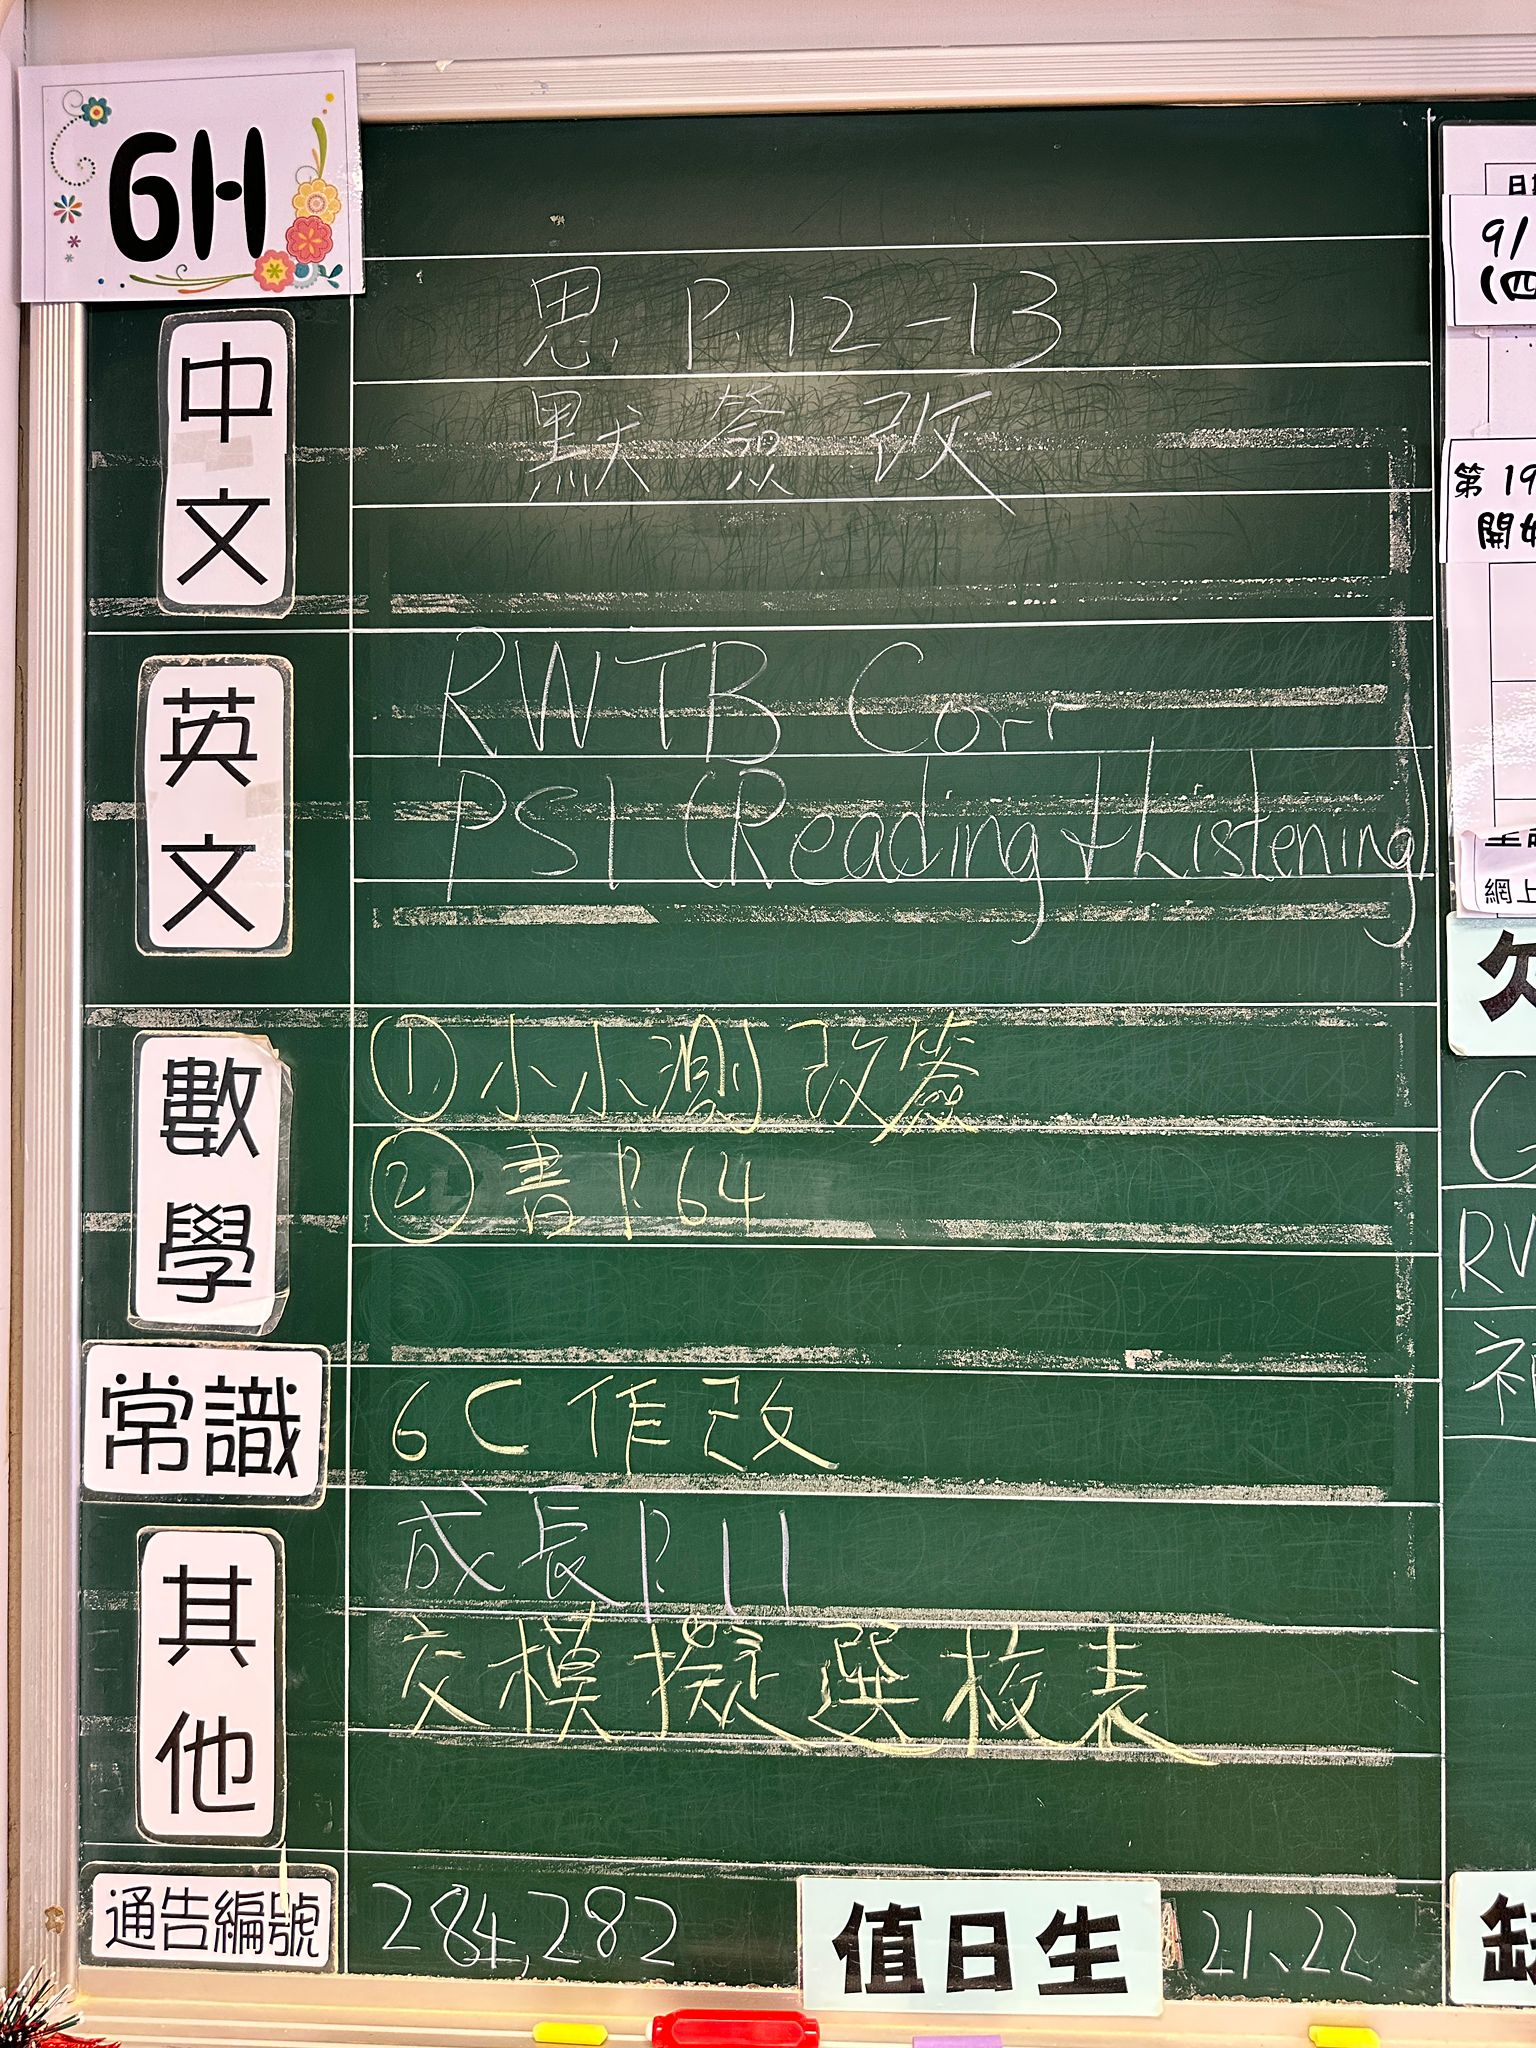 6H
中文
思 P.12-13
默簽改
英文
RWTB Corr
PS1 (Reading + Listening)
數學
① 小小測改簽
② 書P.64
常識
6C 作改
其他
成長P.11
交模擬選校表
通告編號
284,282
值日生
21、22
9/
(四
第 19
開始
網上
欠
G
RW
補